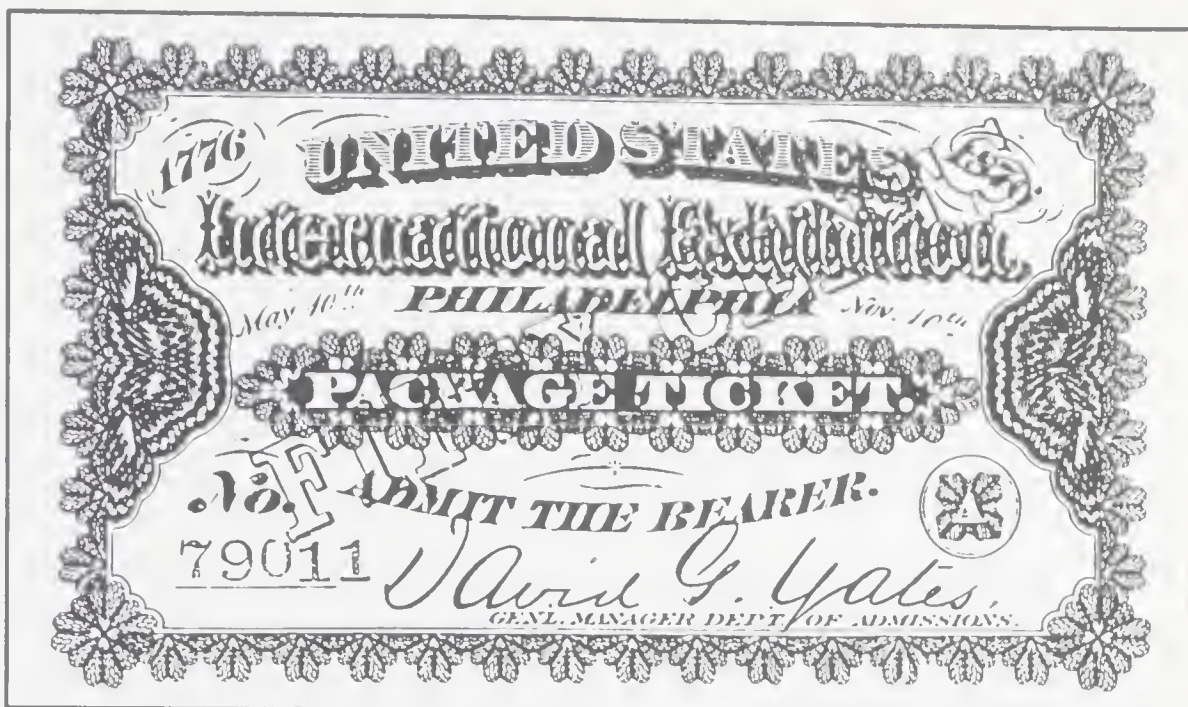 1776 UNITED STATES
International Exhibition,
May 10th PHILADELPHIA Nov. 10th
PACKAGE TICKET.
No. ADMIT THE BEARER.
79011 David G. Yates,
GENL. MANAGER DEPT. OF ADMISSIONS.